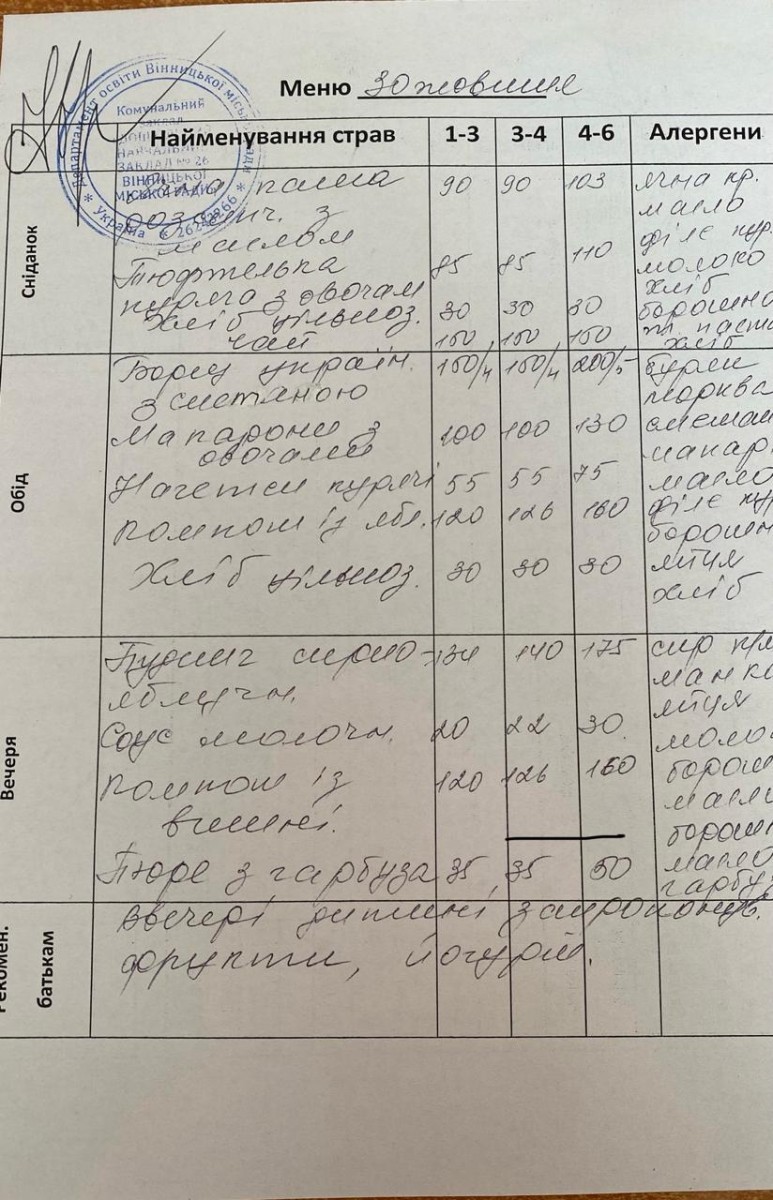 Меню 30 жовтня
Департамент освіти Вінницької міської ради
Комунальний
заклад
НАВЧАЛЬНИЙ
ЗАКЛАД № 26
ВІННИЦЬКОЇ
МІСЬКОЇ РАДИ
* Україна *
Найменування страв 1-3 3-4 4-6 Алергени
Сніданок
каша 90 90 103 ячна кр.
з масло
маслом філе кур.
Тюфтелька 85 85 110 молоко
куряча з овочам хліб
хліб цільноз. 30 30 30 борошно
чай 150 150 150 хліб
Обід
Борщ україн. 150/4 150/4 200/5 буряк
з сметаною морква
Макарони з 100 100 130 сметан
овочами макар
Нагетси курячі 55 55 75 масло
Компот із ябл. 120 126 160 філе кур
борошн
Хліб цільноз. 30 30 30 яйця
хліб
Вечеря
Пудинг сирно- 134 140 175 сир
яблучн. манка
яйця
Соус молочн. 20 22 30 молок
Компот із 120 126 160 борош
вишні. масло
борош
Пюре з гарбуза 35 35 50 масло
гарбуз
Рекомен. батькам
Ввечері дитині запропонув.
фрукти, йогурт.